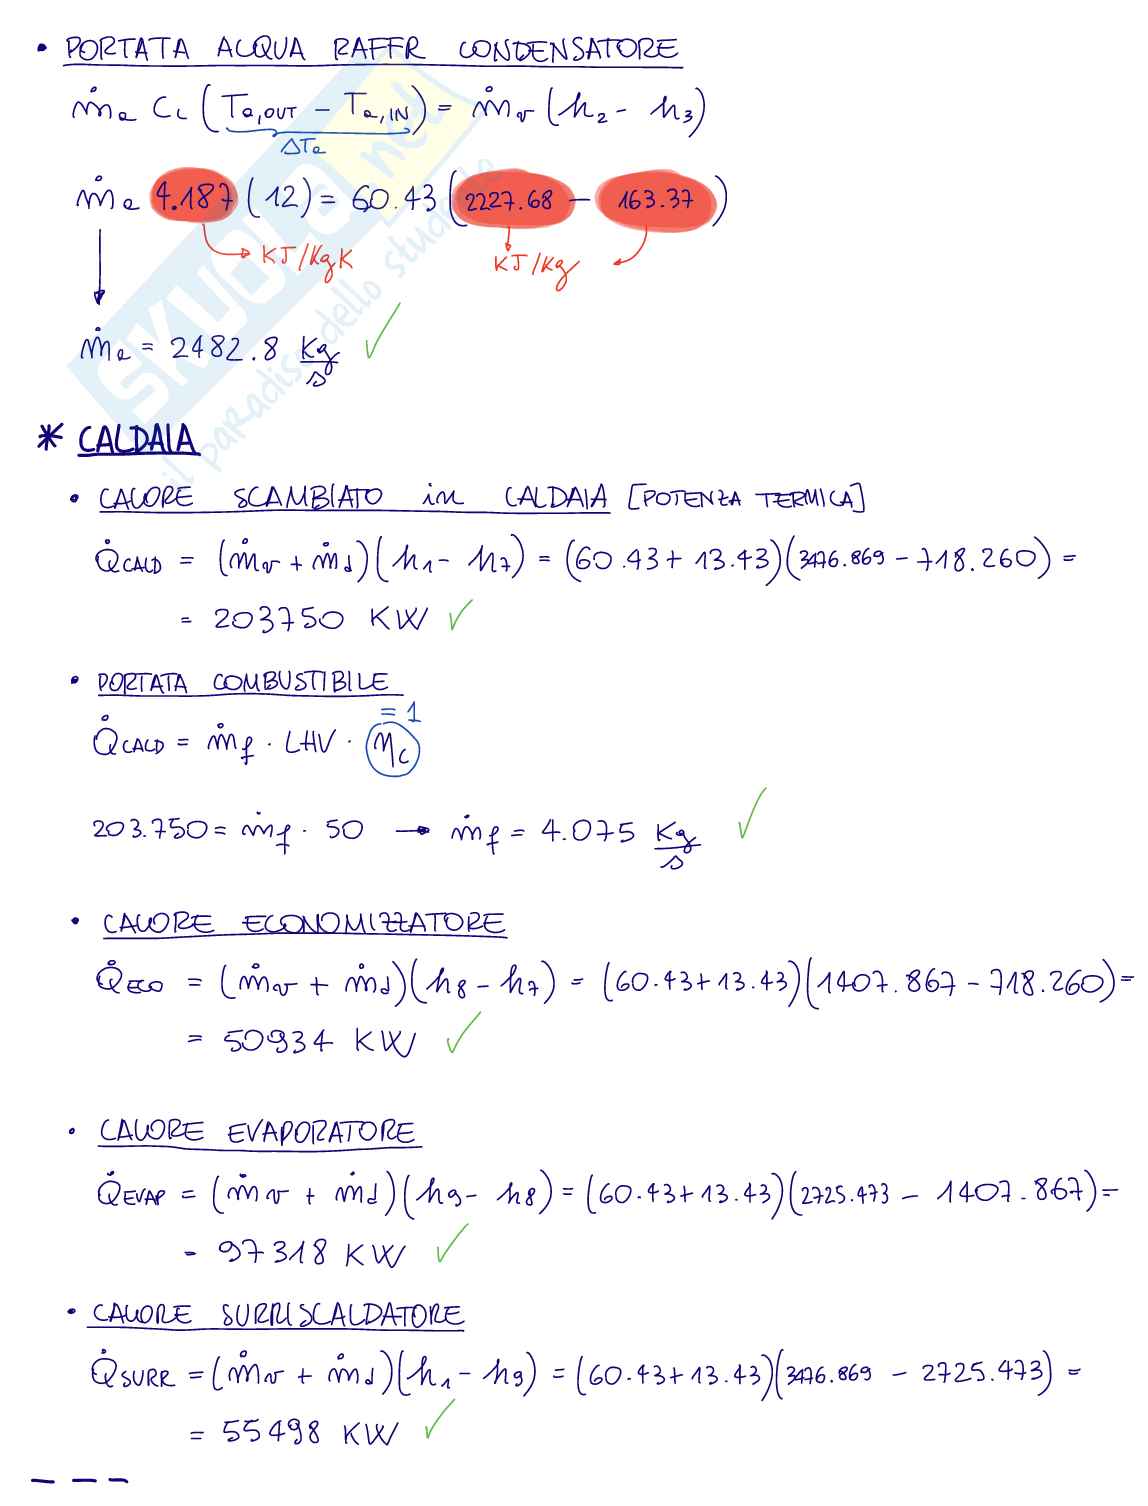 • PORTATA ACQUA RAFFR CONDENSATORE
ṁa CL (Ta,OUT - Ta,IN) = ṁv (h2 - h3)
ΔTa
ṁa 4.187 (12) = 60.43 (2227.68 - 163.37)
KJ/KgK KJ/Kg
ṁa = 2482.8 Kg/s ✓
* CALDAIA
• CALORE SCAMBIATO in CALDAIA [POTENZA TERMICA]
Q̇CALD = (ṁv + ṁd)(h1 - h7) = (60.43 + 13.43)(3476.869 - 718.260) =
= 203750 KW ✓
• PORTATA COMBUSTIBILE
= 1
Q̇CALD = ṁf · LHV · ηc
203.750 = ṁf · 50 → ṁf = 4.075 Kg/s ✓
• CALORE ECONOMIZZATORE
Q̇ECO = (ṁv + ṁd)(h8 - h7) = (60.43 + 13.43)(1407.867 - 718.260) =
= 50934 KW ✓
• CALORE EVAPORATORE
Q̇EVAP = (ṁv + ṁd)(h9 - h8) = (60.43 + 13.43)(2725.473 - 1407.867) =
- 97318 KW ✓
• CALORE SURRISCALDATORE
Q̇SURR = (ṁv + ṁd)(h1 - h9) = (60.43 + 13.43)(3476.869 - 2725.473) =
= 55498 KW ✓
- - -
SKUOLA.net
il paradiso dello studente